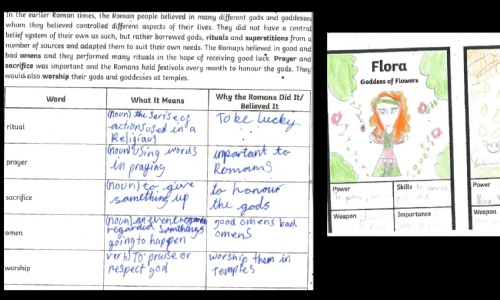 In the earlier Roman times, the Roman people believed in many different gods and goddesses
whom they believed controlled different aspects of their lives. They did not have a central
belief system of their own as such, but rather borrowed gods, rituals and superstitions from a
number of sources and adapted them to suit their own needs. The Romans believed in good and
bad omens and they performed many rituals in the hope of receiving good luck. Prayer and
sacrifice was important and the Romans held festivals every month to honour the gods. They
would also worship their gods and goddesses at temples.
Word What It Means Why the Romans Did It/
Believed It
ritual
(noun) the serise of
actions used in a
Religious
To be lucky
prayer
(noun) using words
in praying
important to
Romans
sacrifice
(noun) to give
something up
to honour
the gods
omen
(noun) an event
regarded somethings
going to happen
good omens bad
omens
worship
verb) To praise or
respect god
worship them in
Temples
Flora
Goddess of Flowers
Power
Skills
Weapon
Importance
Power
Weapon